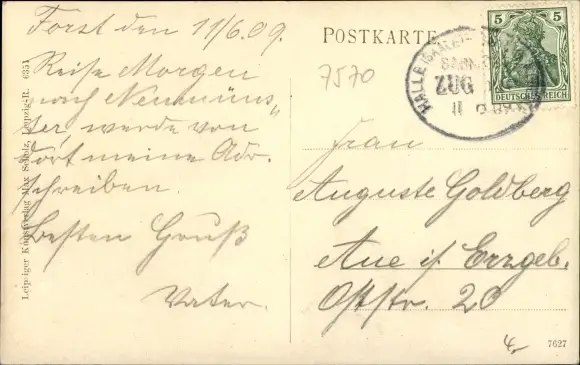 Forst den 11/6.09.
Reise Morgen
nach Neumüns„
ter, werde von
dort meine Adr.
schreiben.
Besten Gruß
Vater.
POSTKARTE
7570
5 5
DEUTSCHES REICH
HALLE (SAALE)
BAHN
ZUG
11 6 09
Frau
Auguste Goldberg
Aue i/ Erzgeb.
Oststr. 20
7627
Leipziger Kunstverlag Max Scholz, Leipzig-R. 6351